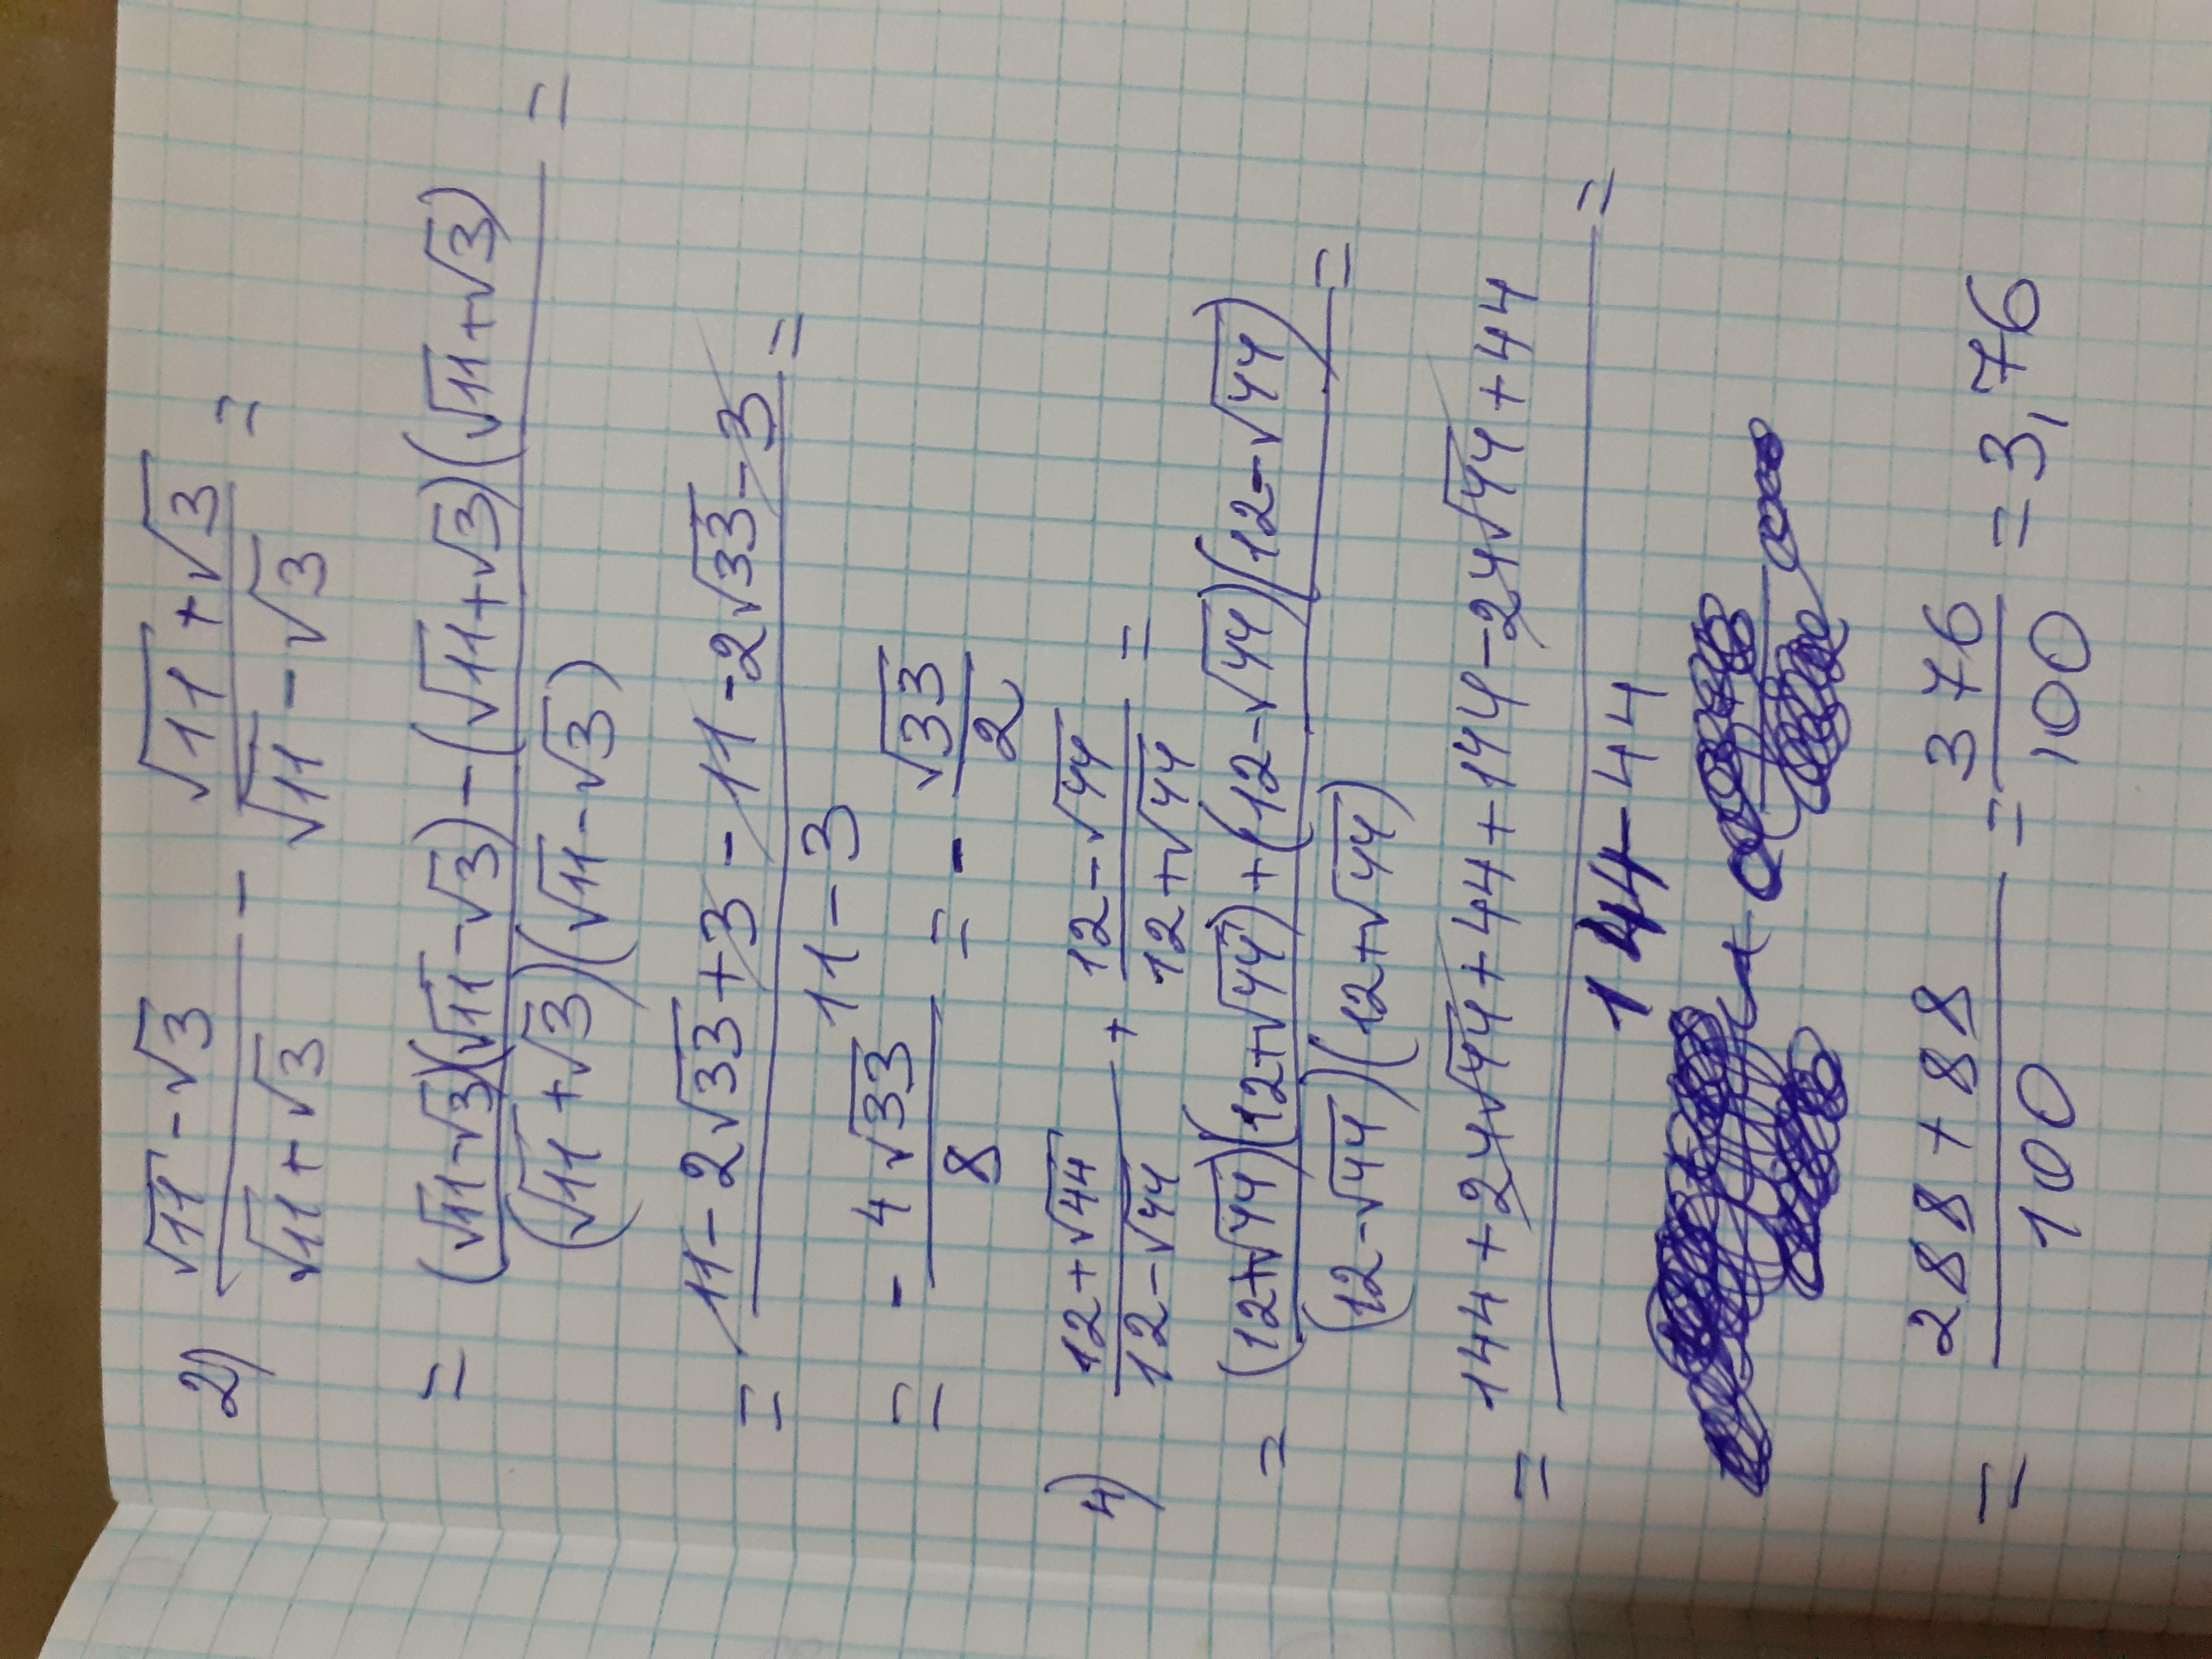 2) (√11 - √3)/(√11 + √3) - (√11 + √3)/(√11 - √3) =
= ((√11-√3)(√11-√3)-(√11+√3)(√11+√3))/((√11+√3)(√11-√3)) =
= (11-2√33+3-11-2√33-3)/(11-3) =
= - 4√33/8 = - √33/2
4) (12+√44)/(12-√44) + (12-√44)/(12+√44) =
= ((12+√44)(12+√44)+(12-√44)(12-√44))/((12-√44)(12+√44)) =
= (144+24√44+44+144-24√44+44)/(144-44) =
= (288+88)/100 = 376/100 = 3,76